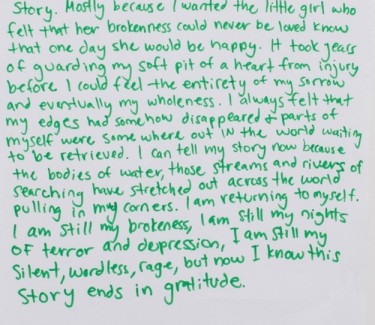 Story. Mostly because I wanted the little girl who
felt that her brokenness could never be loved know
that one day she would be happy. It took years
of guarding my soft pit of a heart from injury
before I could feel the entirety of my sorrow
and eventually my wholeness. I always felt that
my edges had somehow disappeared & parts of
myself were some where out IN the world waiting
to be retrieved. I can tell my story now because
the bodies of water, those streams and rivers of
searching have stretched out across the world
pulling in my corners. I am returning to myself.
I am still my brokeness, I am still my nights
OF terror and depression, I am still my
Silent, wordless, rage, but now I know this
Story ends in gratitude.